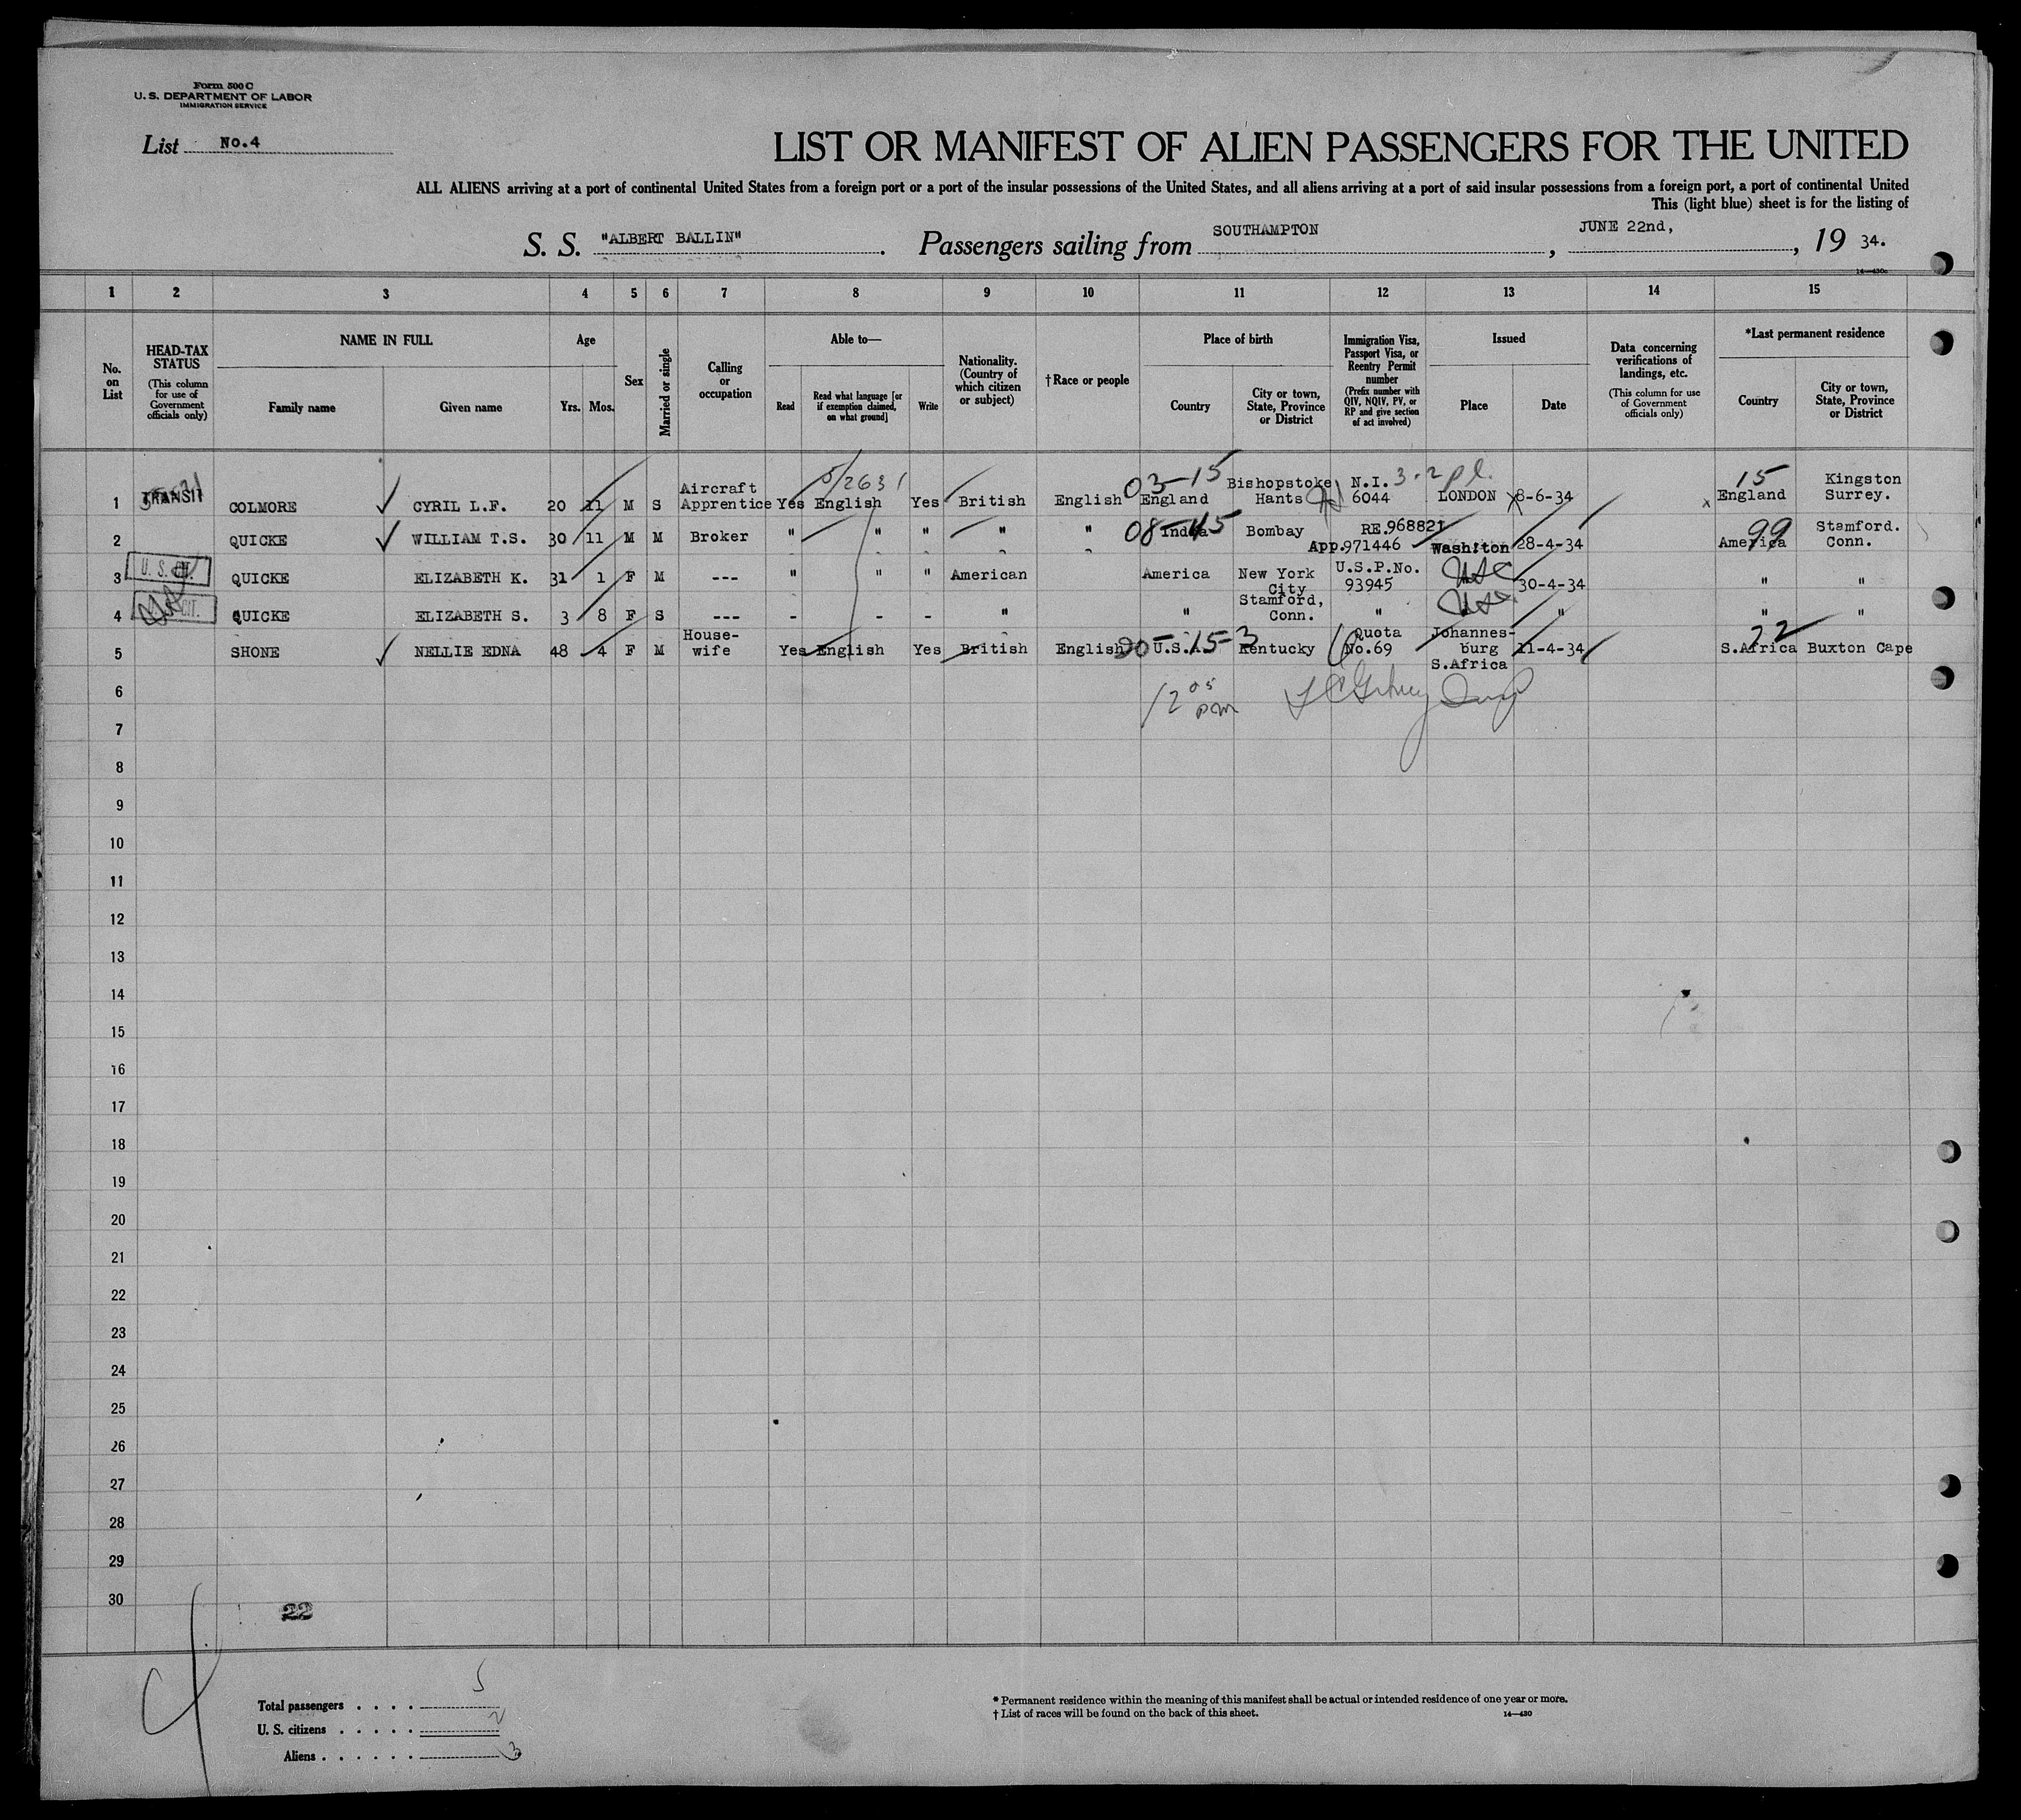 Form 500 C
U. S. DEPARTMENT OF LABOR
IMMIGRATION SERVICE
List No.4
LIST OR MANIFEST OF ALIEN PASSENGERS FOR THE UNITED
ALL ALIENS arriving at a port of continental United States from a foreign port or a port of the insular possessions of the United States, and all aliens arriving at a port of said insular possessions from a foreign port, a port of continental United
This (light blue) sheet is for the listing of
S. S. "ALBERT BALLIN". Passengers sailing from SOUTHAMPTON, JUNE 22nd, , 19 34.
1 2 3 4 5 6 7 8 9 10 11 12 13 14 15
No. on List
HEAD-TAX STATUS
(This column for use of Government officials only)
NAME IN FULL
Family name Given name
Age
Yrs. Mos.
Sex
Married or single
Calling or occupation
Able to—
Read
Read what language [or if exemption claimed, on what ground]
Write
Nationality. (Country of which citizen or subject)
† Race or people
Place of birth
Country
City or town, State, Province or District
Immigration Visa, Passport Visa, or Reentry Permit number
(Prefix number with QIV, NQIV, PV, or RP and give section of act involved)
Issued
Place Date
Data concerning verifications of landings, etc.
(This column for use of Government officials only)
*Last permanent residence
Country
City or town, State, Province or District
1 TRANSIT COLMORE CYRIL L.F. 20 11 M S Aircraft Apprentice Yes English Yes British English 03-15 England Bishopstoke Hants N.I. 6044 3-2 LONDON 8-6-34 15 England Kingston Surrey.
2 QUICKE WILLIAM T.S. 30 11 M M Broker " " " " " India Bombay RE.968821 App.971446 Wash:ton 28-4-34 99 America Stamford. Conn.
3 U. S. CIT. QUICKE ELIZABETH K. 31 1 F M --- " " " American America New York City U.S.P.No. 93945 30-4-34 " "
4 CIT. QUICKE ELIZABETH S. 3 8 F S --- - - - " " Stamford, Conn. " " " "
5 SHONE NELLIE EDNA 48 4 F M House-wife Yes English Yes British English U.S.A. Kentucky Quota No.69 Johannes-burg S.Africa 11-4-34 22 S.Africa Buxton Cape
6 12 05 pm
7
8
9
10
11
12
13
14
15
16
17
18
19
20
21
22
23
24
25
26
27
28
29
30
22
4
Total passengers . . . . 5
U. S. citizens . . . . . 2
Aliens . . . . . . 3
* Permanent residence within the meaning of this manifest shall be actual or intended residence of one year or more.
† List of races will be found on the back of this sheet.
14—430